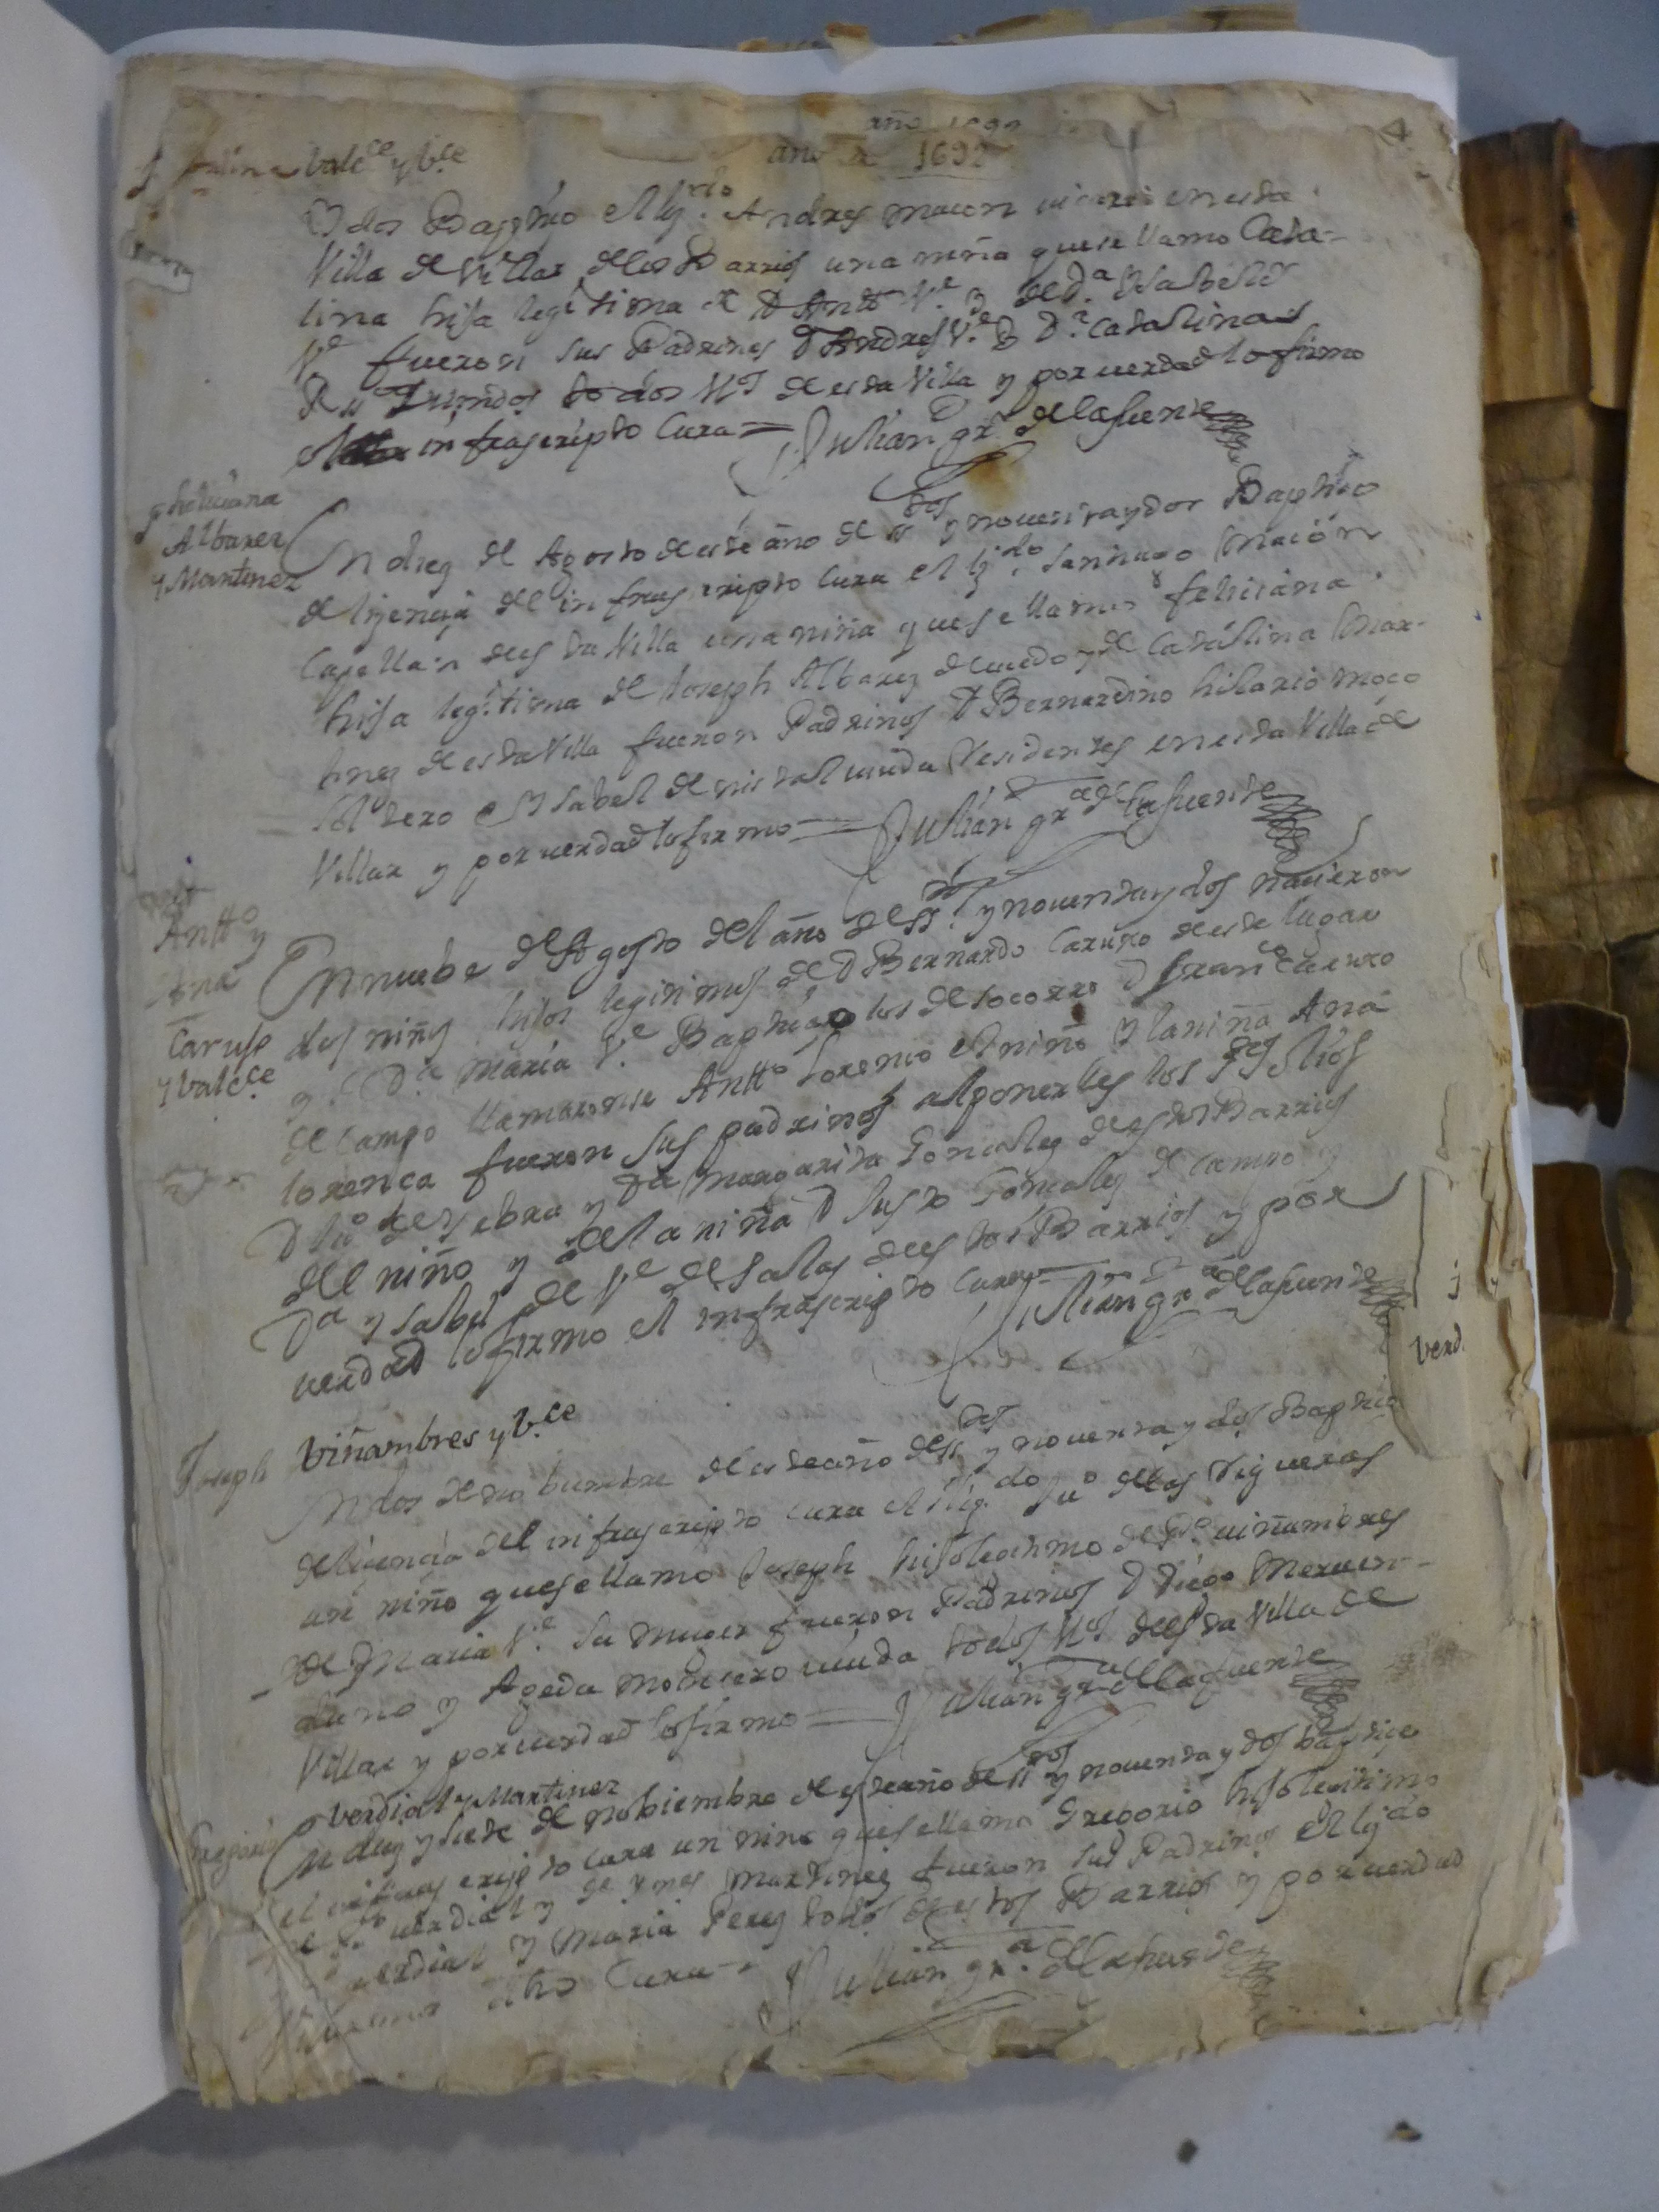 año 1692
año de 1692
Catalina Valc.ce y V.ce
y dos Baptiço el liz.do Andres macon vicario en esta
Villa de Villar de los Barrios una niña que se llamo Cata-
lina hija legitima de D Antt.o V.e y de D.a Ysabel de
V.e fueron sus Padrinos D Andres V.e y D.a Catalina
todos V.os de esta Villa y por verdad lo firmo
el infrascripto Cura = Julian gr.a de la fuente
feliciana
Albarez
y Martinez
En diez de Agosto de este año de ss.tos y noventa y dos Baptiço
de lizencia del infrascripto Cura el liz.do Santiago macion
Capellan de esta Villa una niña que se llamo feliciana
hija legitima de Joseph Albarez de cuedo y de Catalina Mar-
tinez de esta Villa fueron Padrinos D Bernardino hilario moço
soltero e Ysabel de nistal viuda Residentes en esta Villa de
Villar y por verdad lo firmo = Julian gr.a de la fuente
Antt.o y
Ana
Caruso
y Valc.ce
En nuebe de Agosto del año de ss.tos y noventa y dos nacieron
dos niños hijos legitimos de D Bernardo Caruxo de este lugar
y D.a Maria V.e Baptiço los de socorro D fran.co Caruxo
de Campo llamaronse Antt.o Lorenço el niño y la niña Ana
lorença fueron sus padrinos al ponerles los s.tos olios
D Ju.o de Yebra y D.a Margarita Gonçalez de estos Barrios
del niño y de la niña D Justo Gonçalez de Campo y
D.a ysabel de V.e de Salas de estos Barrios y por
verdad lo firmo el infrascripto Cura = Julian gr.a de la fuente
verd.
Joseph Viñambres y V.ce
En dos de nobiembre de este año de ss.tos y noventa y dos Baptiço
de licencia del infrascripto cura el liz.do Ju.o de las Higueras
un niño que se llamo Joseph hijo legitimo de P.o viñambres
y de Maria V.e su muger fueron Padrinos D Diego Meruen-
dano y Ageda molinero viuda todos V.os de esta Villa de
Villar y por verdad lo firmo = Julian gr.a de la fuente
Gregorio Verdial y Martinez
En diez y siete de nobiembre de este año de ss.tos y noventa y dos baptiçe
el infrascripto cura un niño que se llamo Gregorio hijo legitimo
de P.o verdial y de ynes martinez fueron sus Padrinos el liz.do
verdial y Maria Perez todos de estos Barrios y por verdad
lo firmo dho Cura = Julian gr.a de la fuente